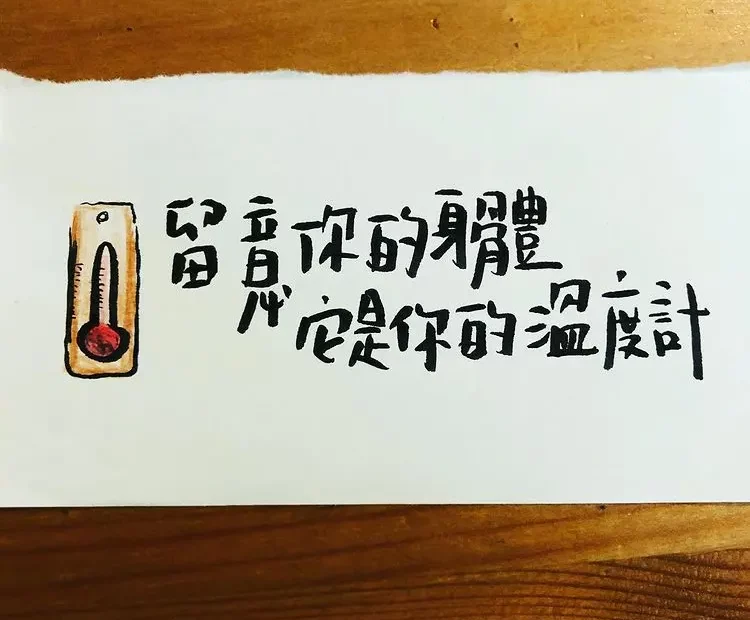 留意你的身體
它是你的溫度計